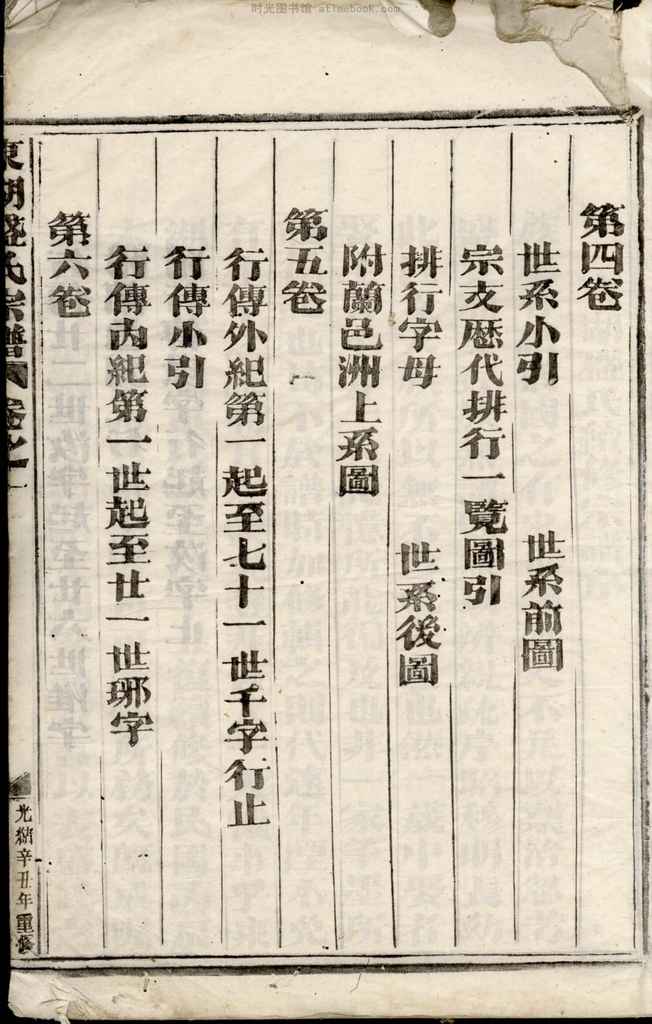 时光图书馆 atimebook.com
第四卷
世系小引 世系前圖
宗支歴代排行一覽圖引
排行字母 世系後圖
附蘭邑洲上系圖
第五卷
行傳外紀第一起至七十一世千字行止
行傳小引
行傳內紀第一世起至廿一世琊字
第六卷
東湖盛氏宗譜 卷之一
光緒辛丑年重修